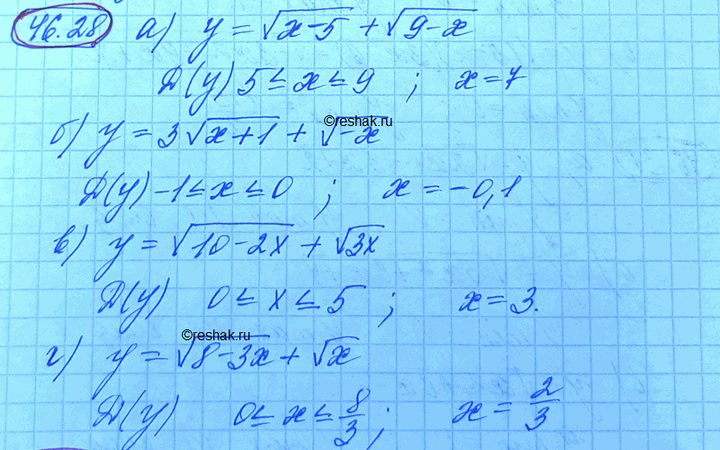 46.28 а) y = √(x-5) + √(9-x)
Д(y) 5 ≤ x ≤ 9 ; x = 7
©reshak.ru
б) y = 3√(x+1) + √(-x)
Д(y) -1 ≤ x ≤ 0 ; x = -0,1
в) y = √(10-2x) + √(3x)
Д(y) 0 ≤ x ≤ 5 ; x = 3.
©reshak.ru
г) y = √(8-3x) + √x
Д(y) 0 ≤ x ≤ 8/3 ; x = 2/3